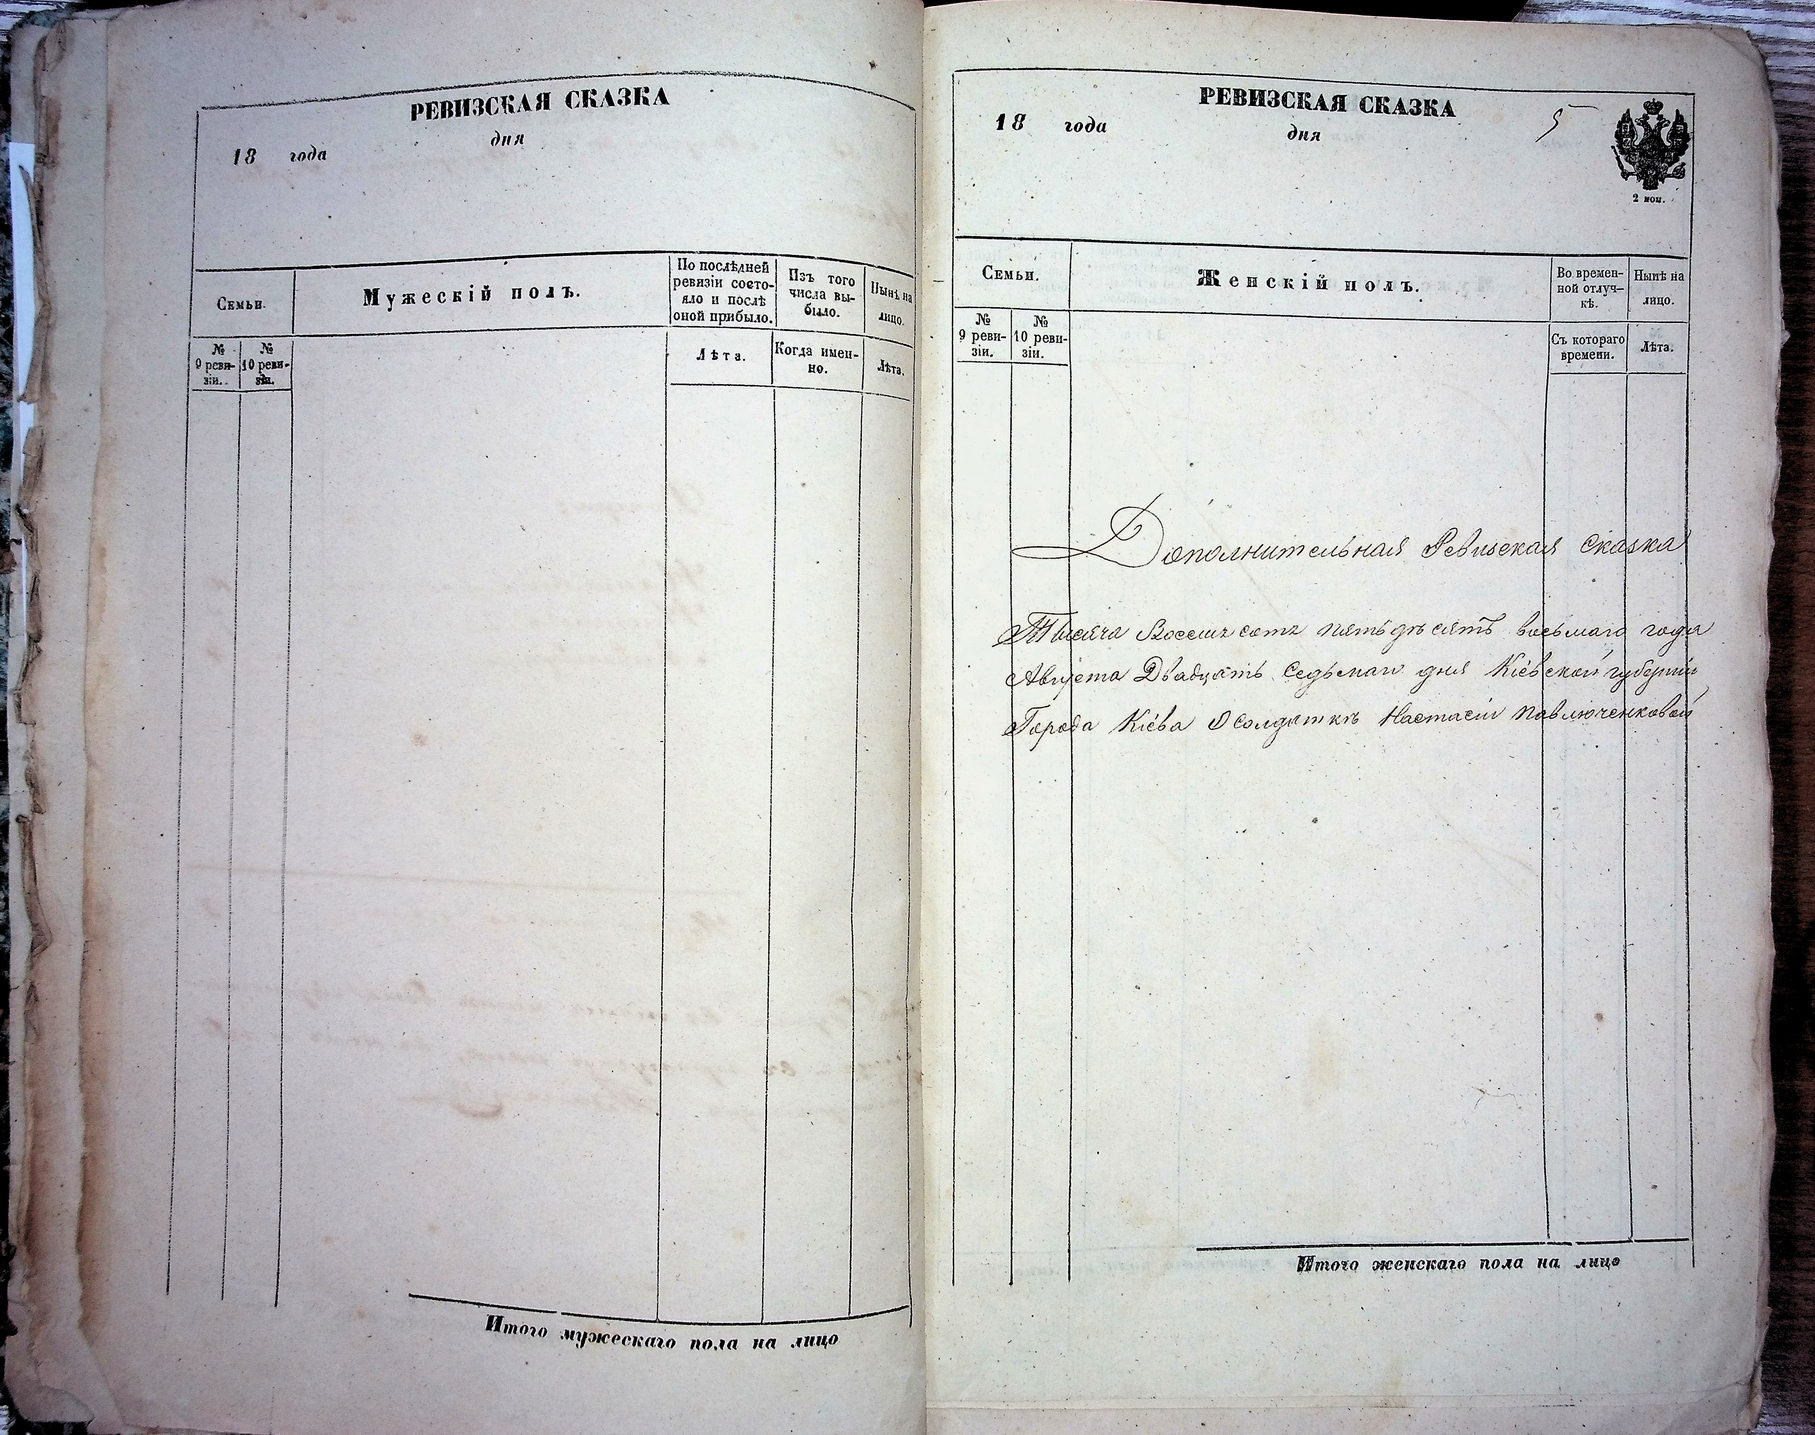 РЕВИЗСКАЯ СКАЗКА
дня
18 года
Семьи.
Мужескій полъ.
По послѣдней
ревизіи состо-
яло и послѣ
оной прибыло.
Изъ того
числа вы-
было.
Нынѣ на
лицо.
№
9 реви-
зіи.
№
10 реви-
зіи.
Лѣта.
Когда имен-
но.
Лѣта.
Итого мужескаго пола на лицо
РЕВИЗСКАЯ СКАЗКА
5
18 года
дня
2 коп.
Семьи.
Женскій полъ.
Во времен-
ной отлуч-
кѣ.
Нынѣ на
лицо.
№
9 реви-
зіи.
№
10 реви-
зіи.
Съ котораго
времени.
Лѣта.
Дополнительная Ревизская Сказка
Тысяча Восемь сотъ пятьдѣсятъ восьмаго года
Августа Двадцать Седьмаго дня Кіевской губерніи
Города Кіева О солдаткѣ Настасіи Павлюченковой
Итого женскаго пола на лицо